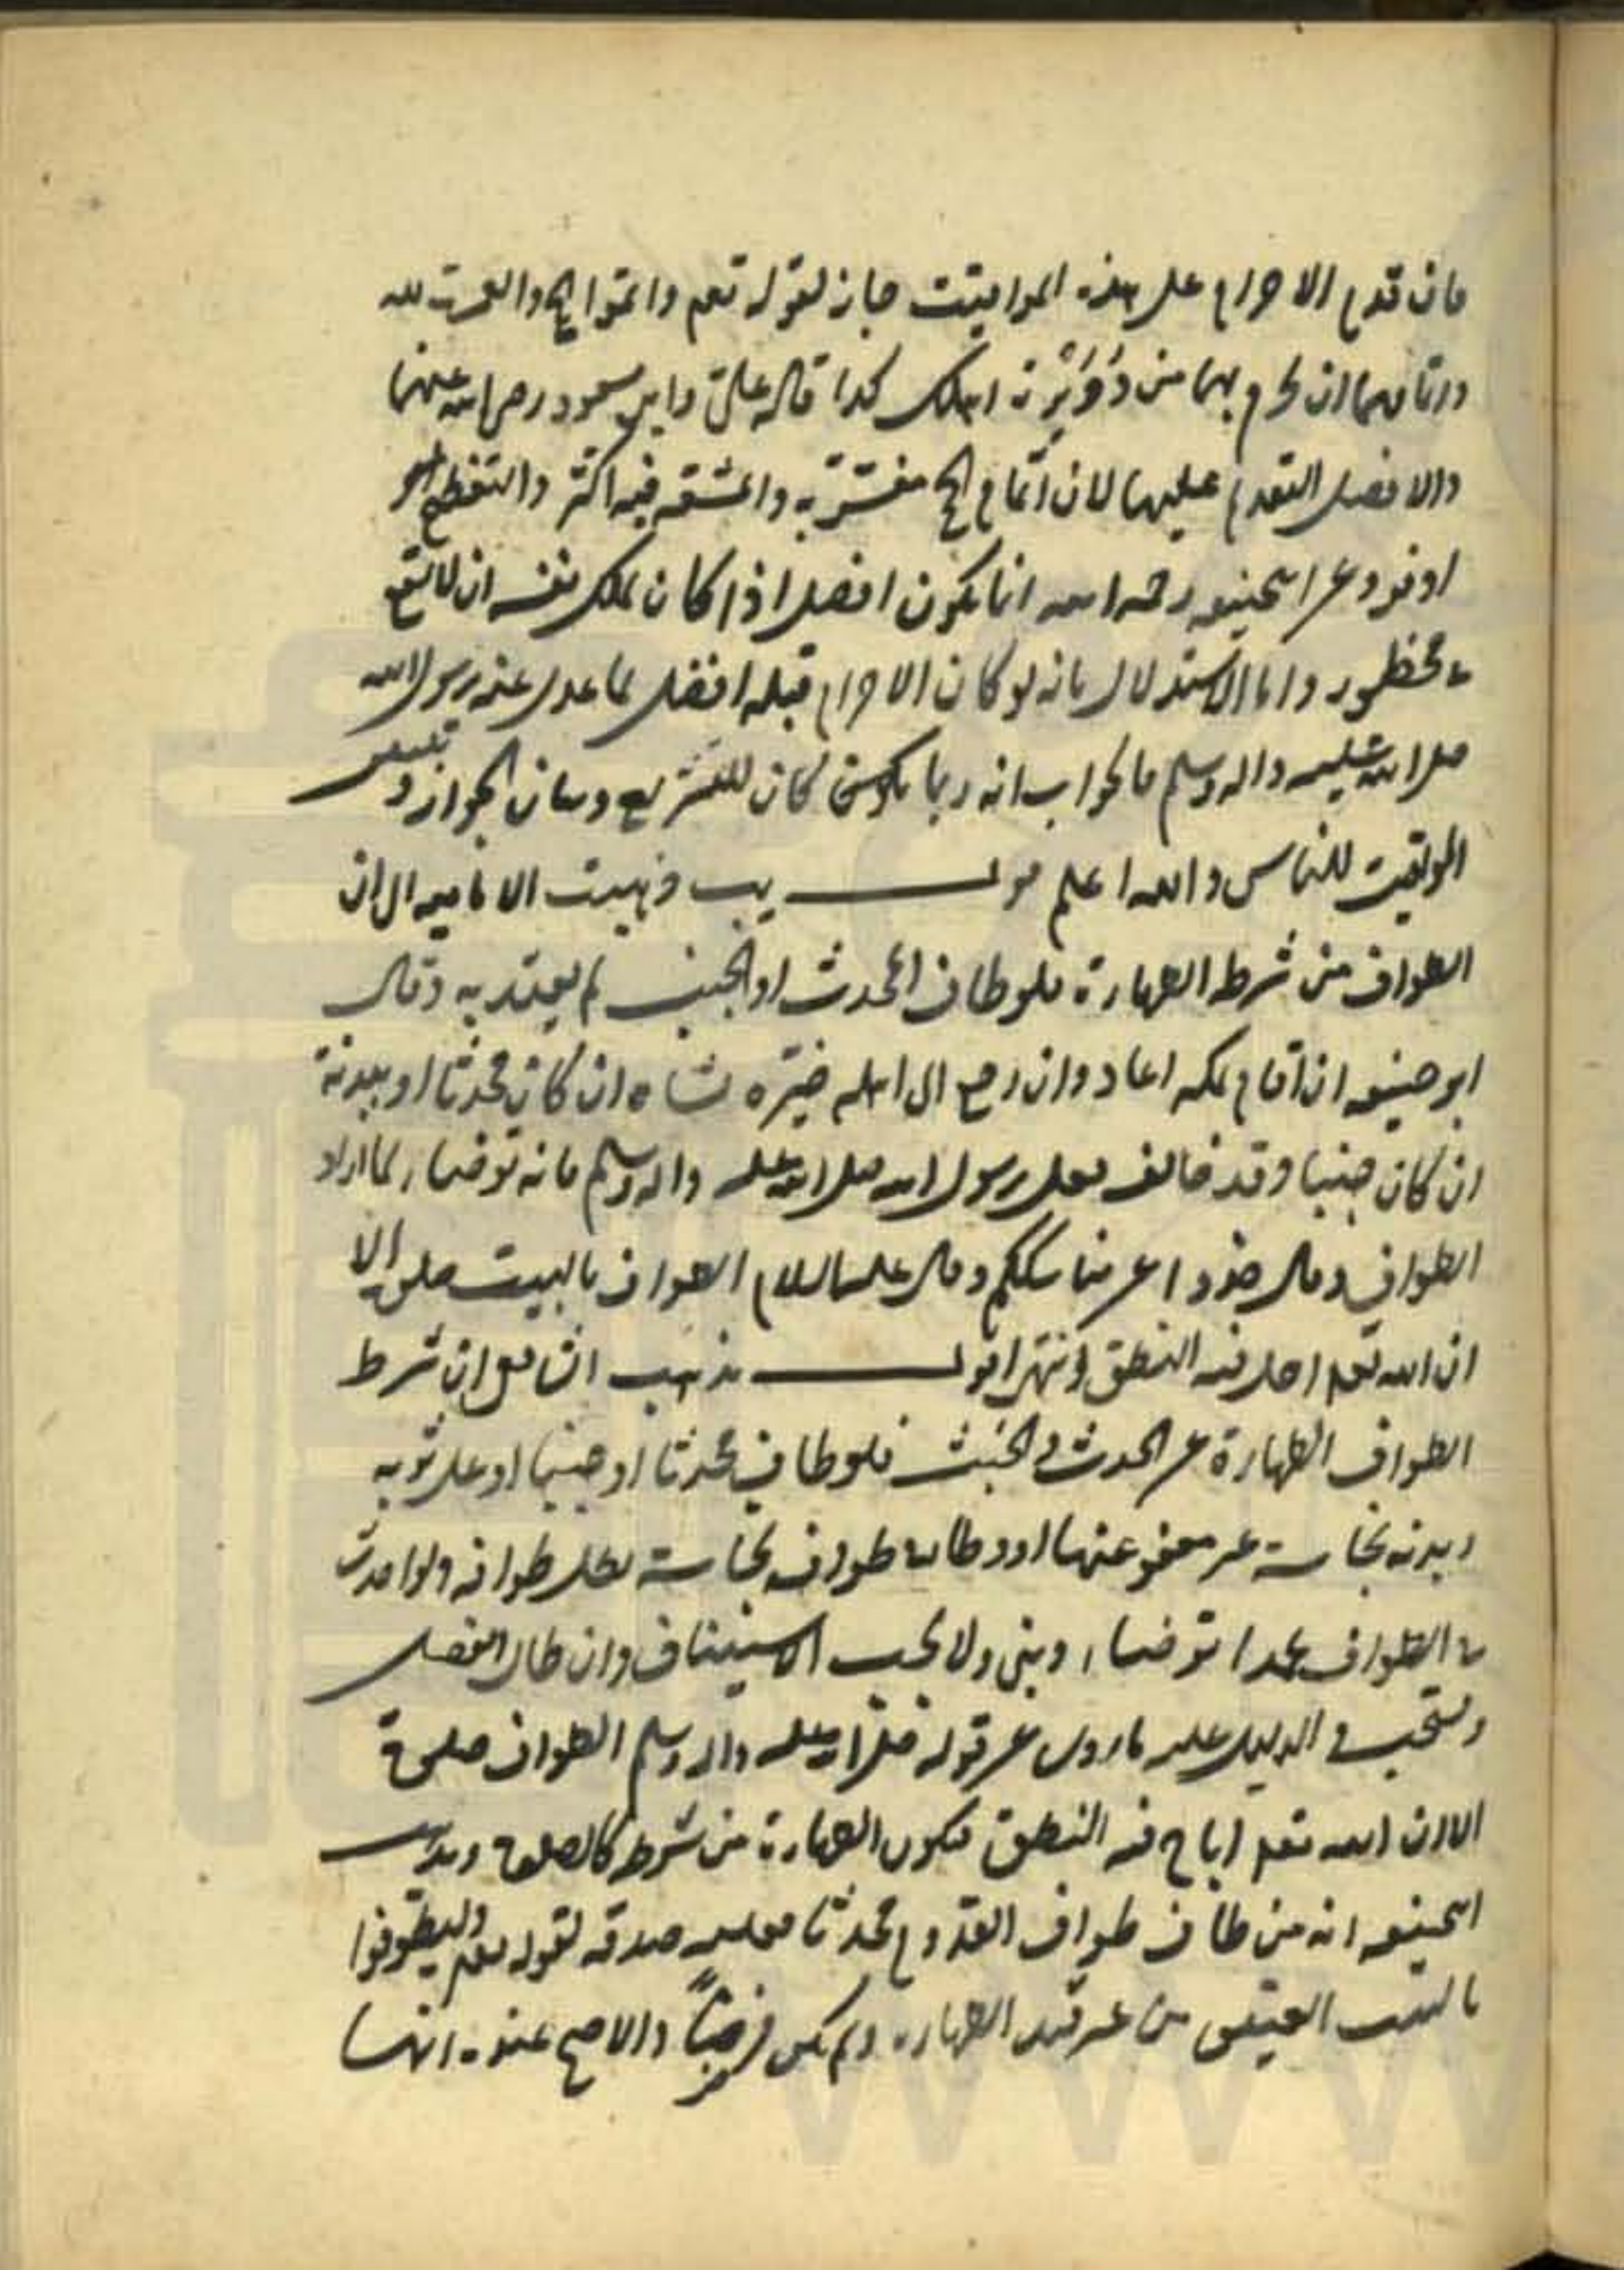 فان قدم الاحرام على هذه المواقيت جاز لقوله تعم واتموا الحج والعمرة لله
واتمامهما ان يحرم بهما من دُوَيْرة اهلك كذا قاله علي وابن مسعود رضي الله عنهما
والافضل التقديم عليها لان اتمام الحج مفسّر به والمشقة فيه اكثر والتعظيم
اوفر وعن ابيحنيفه رحمه الله انما يكون افضل اذا كان يملك نفسه ان لا يقع
في محظور واما الاستدلال بانه لو كان الاحرام قبله افضل لما عدل عنه رسول الله
صلى الله عليه واله وسلم فالجواب انه ربما كان للتشريع وبيان الجواز و
المواقيت للناس والله اعلم قوله يب ذهبت الاماميه الى ان
الطواف من شرطه الطهارة فلو طاف المحدث او الجنب لم يعتد به وقال
ابو حنيفه ان اقام بمكه اعاد وان رجع الى اهله جبره شاه ان كان محدثا او ببدنة
ان كان جنبا وقد خالف فعل رسول الله صلى الله عليه واله وسلم فانه توضاء لما اراد
الطواف وقال خذوا عني مناسككم وقال عليه السلام الطواف بالبيت صلوة الا
ان الله تعم احل فيه النطق انتهى اقول مذهب الشافعي ان شرط
الطواف الطهارة عن الحدث والخبث فلو طاف محدثا او جنبا او على ثوبه
وبدنه نجاسة غير معفو عنها او وطاء طواف نجاسة بطل طوافه ولو احدث
في الطواف عمدا توضاء وبنى ولا يجب الاستيناف وان طال الفصل
ويستحب والدليل عليه ما روي عن قوله صلى الله عليه واله وسلم الطواف صلوة
الا ان الله تعم اباح فيه النطق فيكون الطهارة من شرطه كالصلوة ومذهب
ابيحنيفه انه من طاف طواف القدوم محدثا فعليه صدقه لقوله تعم وليطوفوا
بالبيت العتيق من غير قيد الطهاره ولم يكن فرضاً والاصح عنده انها